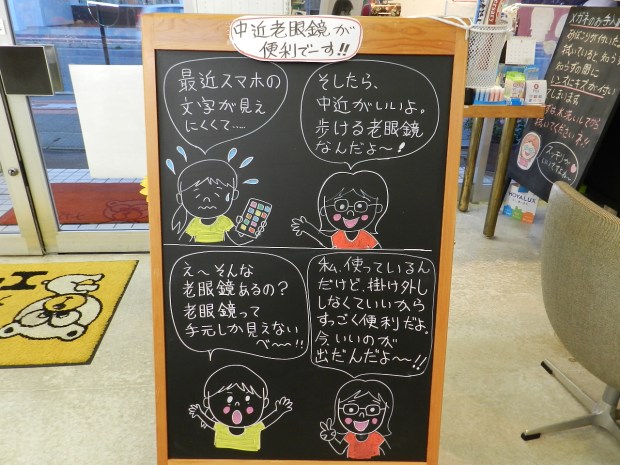 中近老眼鏡が
便利でーす!!
最近スマホの
文字が見え
にくくて……
そしたら、
中近がいいよ。
歩ける老眼鏡
なんだよ〜!
え〜そんな
老眼鏡あるの?
老眼鏡って
手元しか見えない
べ〜〜!!
私、使っているん
だけど、掛け外し
しなくていいから
すっごく便利だよ。
今、いいのが
出だんだよ〜!!
メガネのお手入れ
知らずの間に
レンズにキズが付い
しまいます
HOYALUX